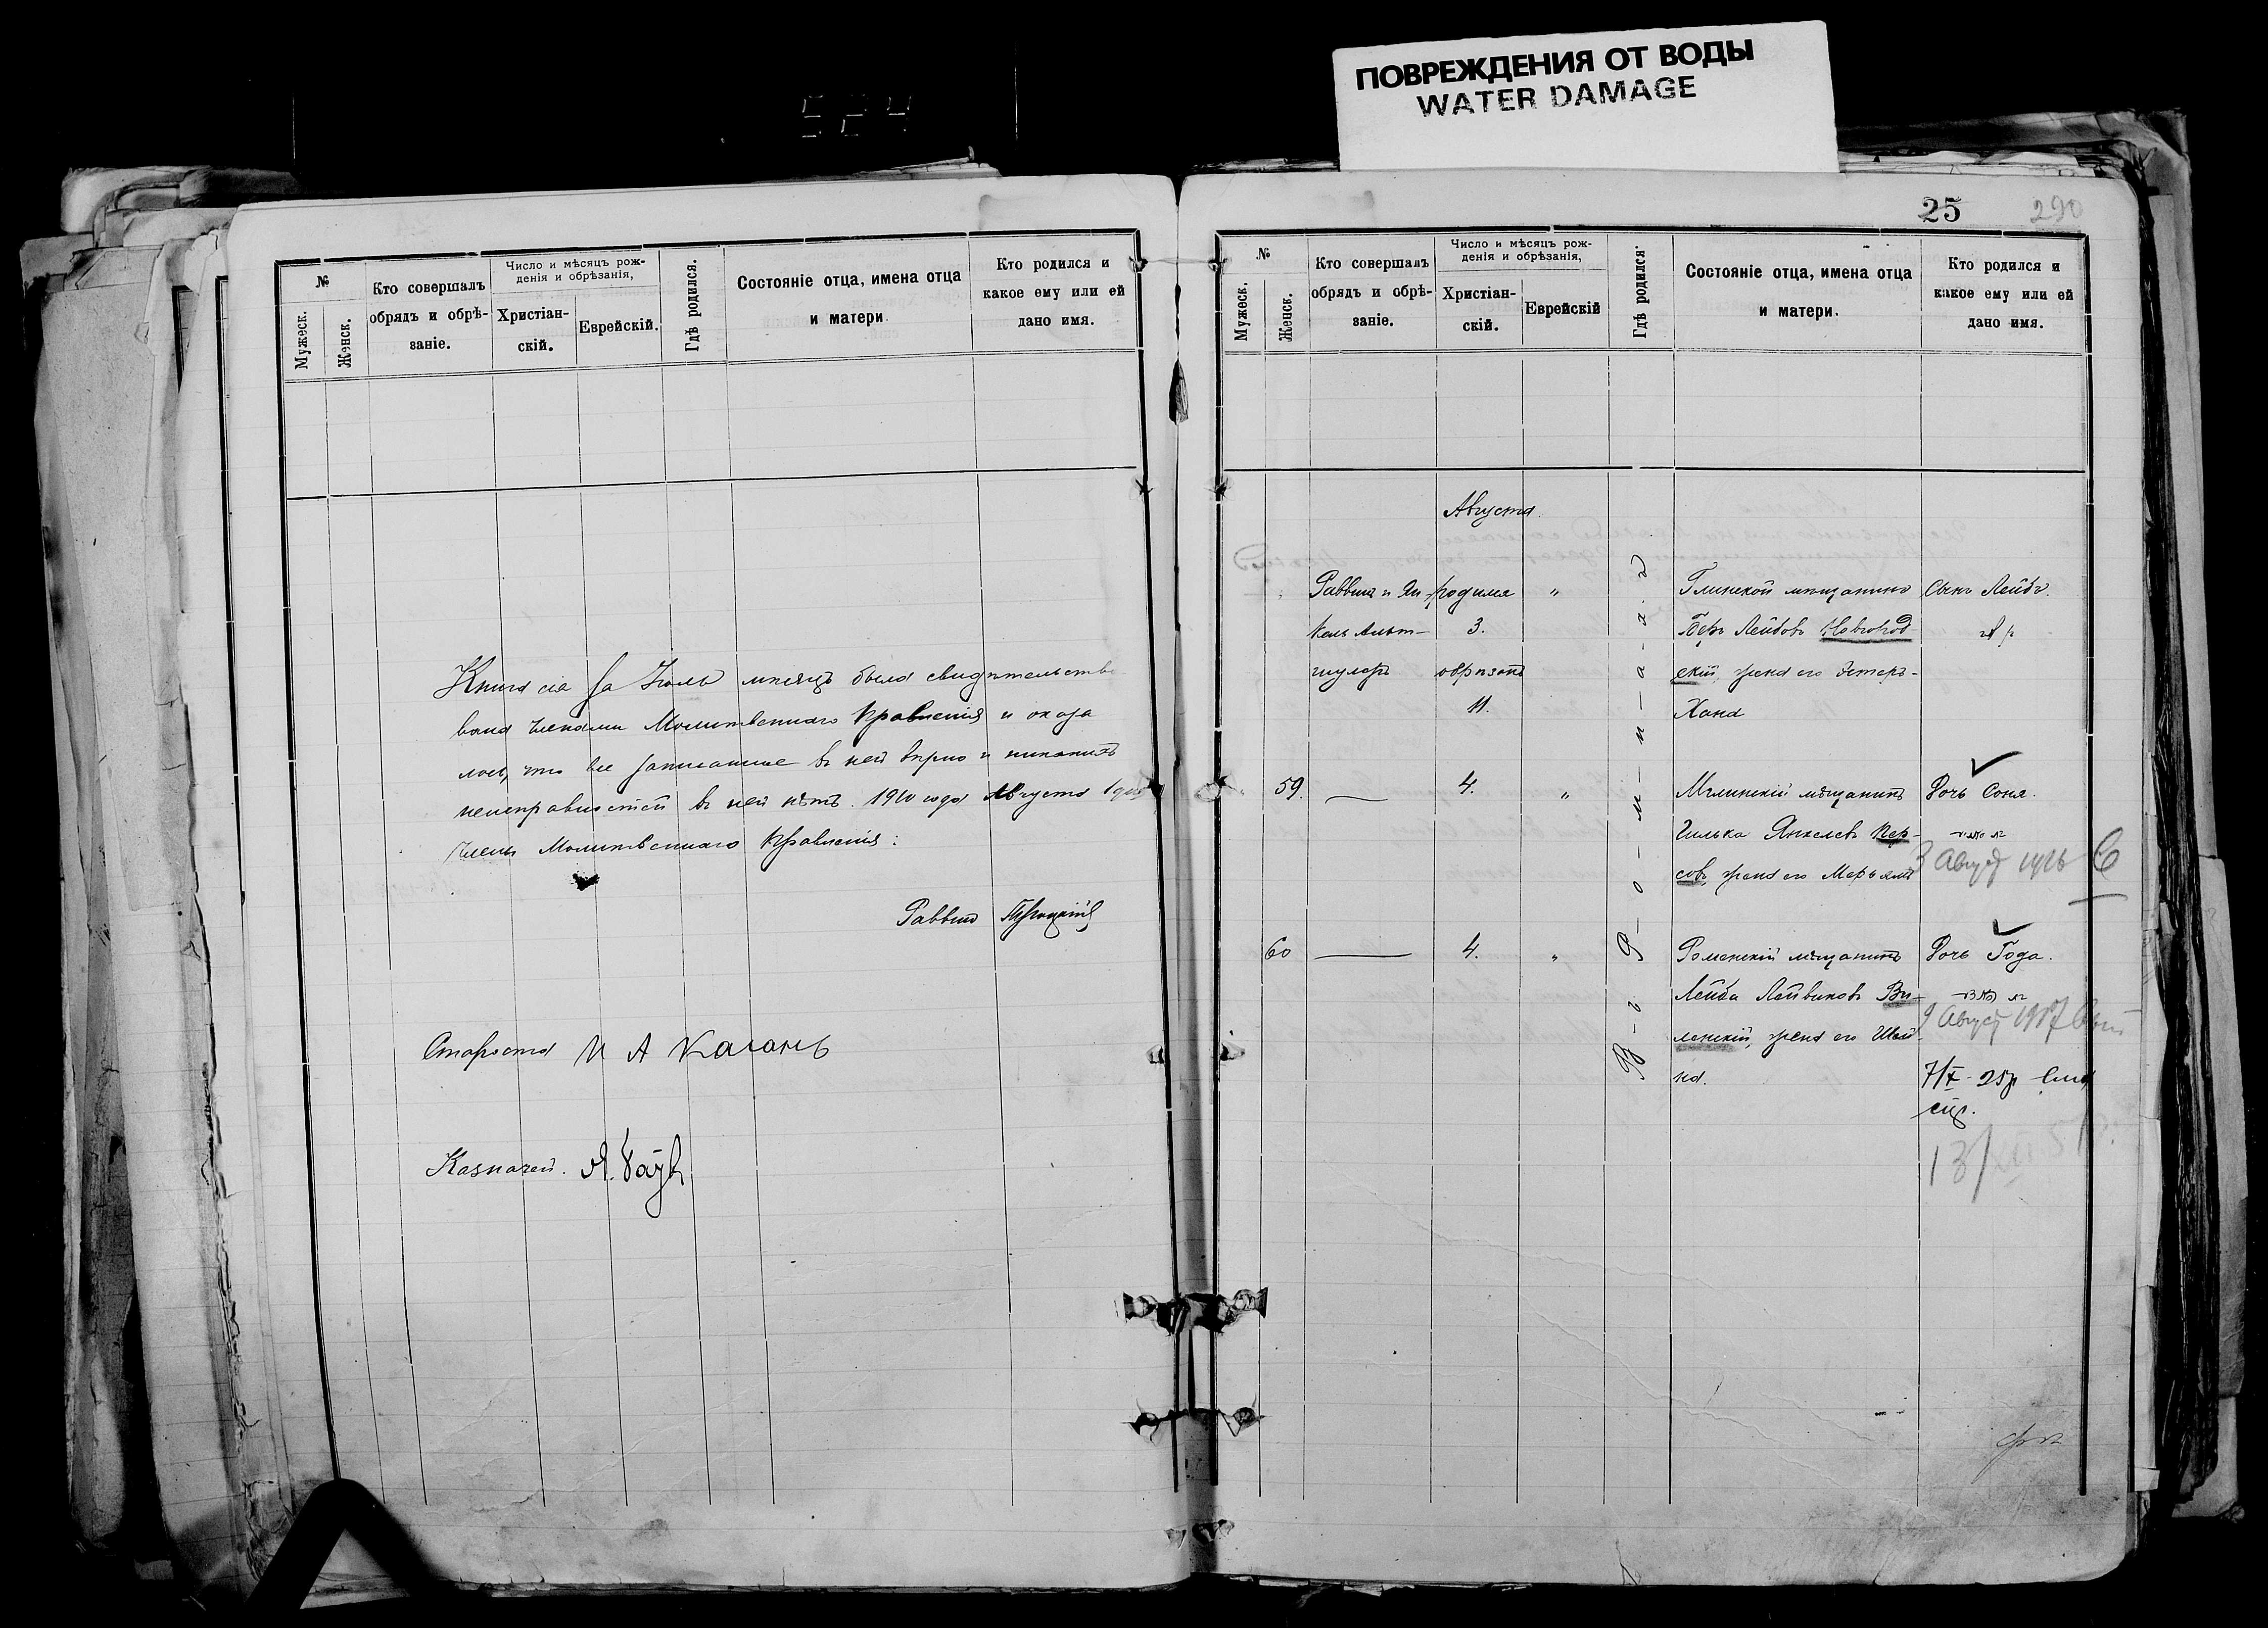 ПОВРЕЖДЕНИЯ ОТ ВОДЫ
WATER DAMAGE
№
Мужеск.
Женск.
Кто совершалъ
обрядъ и обрѣ-
заніе.
Число и мѣсяцъ рож-
денія и обрѣзанія,
Христіан-
скій.
Еврейскій.
Гдѣ родился.
Состояніе отца, имена отца
и матери
Кто родился и
какое ему или ей
дано имя.
Книга сія за Іюль мѣсяцъ была свидѣтельство
вана членами Молитвеннаго Правленія и оказа
лось, что все записанное въ ней вѣрно и никакихъ
неисправностей въ ней нѣтъ. 1910 года Августа 1 дня
Члены Молитвеннаго Правленія:
Раввинъ
Староста И А Каганъ
Казначей.
25 290
№
Мужеск.
Женск.
Кто совершалъ
обрядъ и обрѣ-
заніе.
Число и мѣсяцъ рож-
денія и обрѣзанія,
Христіан-
скій.
Еврейскій
Гдѣ родился.
Состояніе отца, имена отца
и матери.
Кто родился и
какое ему или ей
дано имя.
Августа.
Раввинъ и Ян- родился " Глинской мѣщанинъ Сынъ Лейбъ.
кель Альт- 3. Беръ Лейбовъ Новгород
шулеръ обрѣзанъ скій, жена его Эстеръ-
11. Хана
В-г. Р-о-м-н-а-х-ъ
59. — 4. " Мглинскій мѣщанинъ Дочь Соня.
Гилька Янкелевъ Пер-
совъ, жена его Марьяма
3 Август 1926
60 — 4. " Роменскій мѣщанинъ Дочь Года.
Лейба Лейвиковъ Ви-
ленскій, жена его Шей-
на.
9 Август 1917
7/X-25р
13/